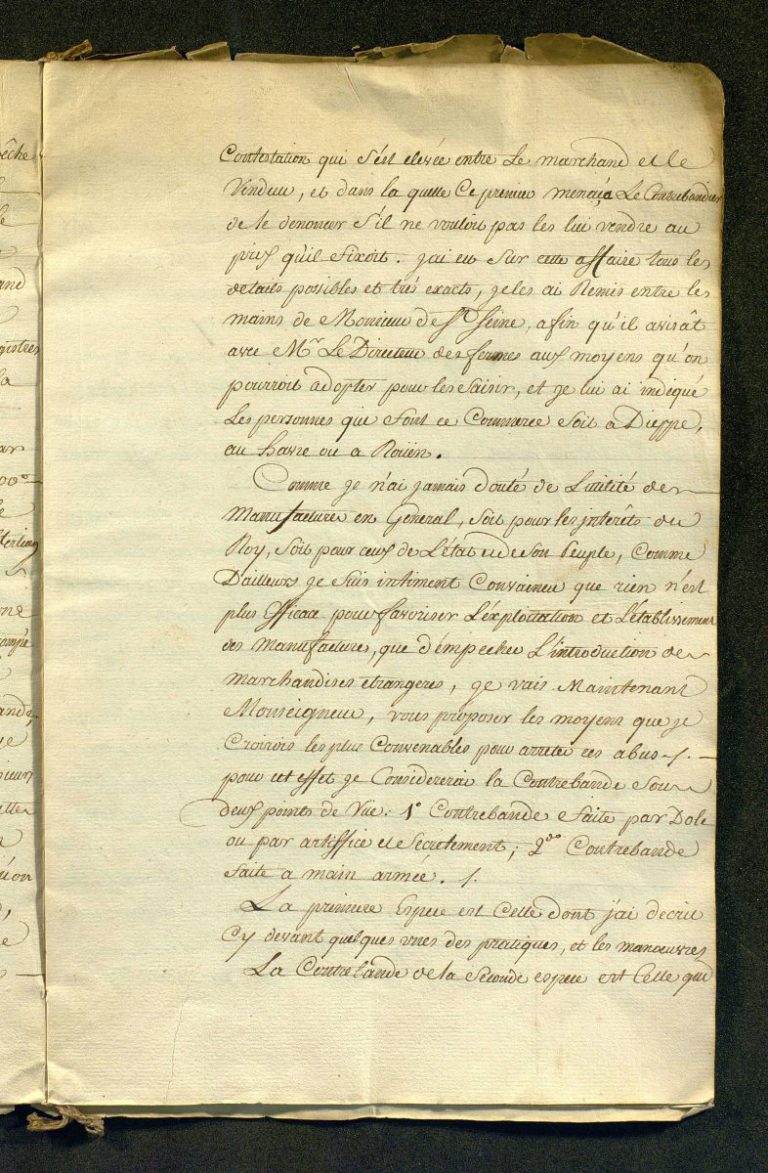 êche
le
and
gistrées
la
ar
00°
le
Sterling
ne
compte
ande,
ieurs
u'on
Contestation qui s'est elevée entre Le marchand et le
Vendeur, et dans la quelle Ce premier menaça Le Contrebandier
de le denoncer s'il ne vouloit pas les lui vendre au
prix qu'il fixoit. j'ai eu Sur cette affaire tous les
details possibles et tres exacts, je les ai Remis entre les
mains de Monsieur de St. Seine, afin qu'il avisât
avec Mr. Le Directeur des fermes aux moyens qu'on
pourroit adopter pour les saisir, et je lui ai indiqué
Les personnes qui font ce Commerce soit a Dieppe,
au havre ou a Roüen.
Comme je n'ai jamais douté de L'utilité des
Manufactures en General, soit pour les interêts du
Roy, soit pour ceux de L'état et de son Peuple, Comme
D'ailleurs je suis intiment Convaincu que rien n'est
plus efficace pour favoriser L'exploitation et L'établissement
des Manufactures, que d'empecher L'introduction des
marchandises etrangeres, je vais Maintenant
Monseigneur, vous proposer les moyens que je
Croirois les plus Convenables pour arreter ces abus ./.
pour cet effet je Considererai la Contrebande sous
deux points de Vue: 1° Contrebande faite par Dole
ou par artiffice et secretement; 2do Contrebande
faite a main armée. /.
La premiere Espece est Celle dont j'ai decrit
Cy devant quelques unes des pratiques, et les manœuvres
La Contrebande de la seconde espece est Celle qui